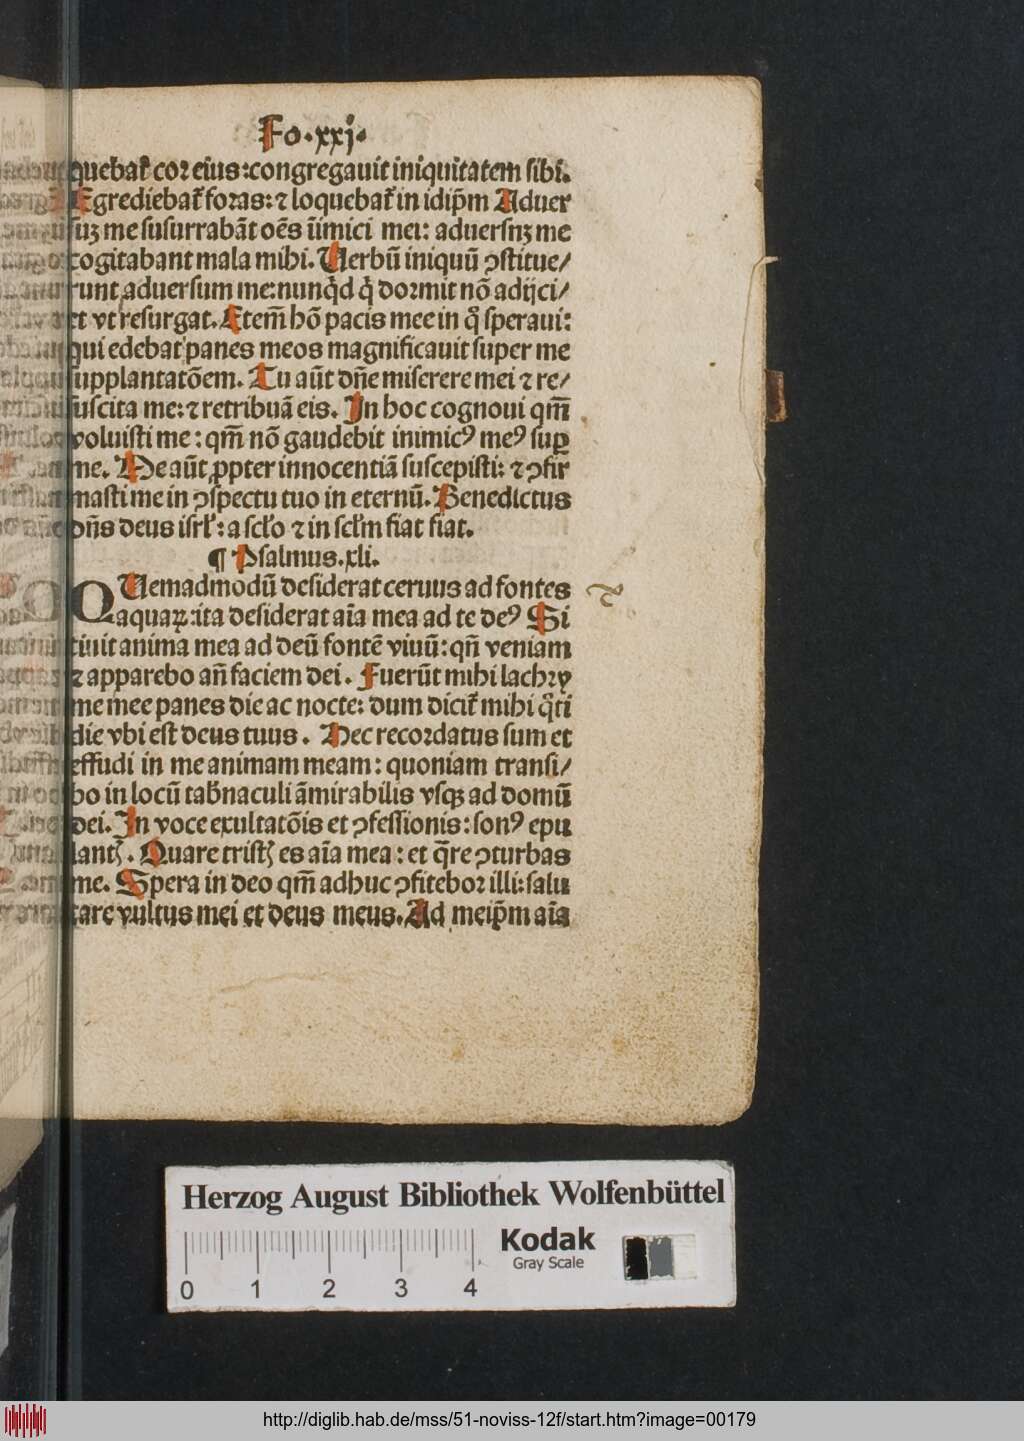 Fo.xxj.
quebat᷑ cor eius:congregauit iniquitatem sibi.
Egrediebat᷑ foras:⁊ loquebat᷑ in idip̄m Aduer
suꝫ me susurrabāt oēs iīmici mei: aduersuꝫ me
cogitabant mala mihi. Uerbū iniquū ꝯstitue/
runt aduersum me:nunqͥd qͥ dormit nō adijci/
et vt resurgat. Etem̄ hō pacis mee in q̄ speraui:
qui edebat panes meos magnificauit super me
supplantatōem. Tu aūt dn̄e miserere mei ⁊ re/
suscita me:⁊ retribuā eis. In hoc cognoui qm̄
voluisti me: qm̄ nō gaudebit inimicꝰ meꝰ suꝑ
me. Me aūt ꝓpter innocentiā suscepisti: ⁊ ꝯfir
masti me in ꝯspectu tuo in eternū. Benedictus
dn̄s deus isrl̕: a scl̕o ⁊ in scl̕m fiat fiat.
¶ Psalmus.xli.
QUemadmodū desiderat ceruus ad fontes
aquaꝝ:ita desiderat aīa mea ad te deꝰ Si
tiuit anima mea ad deū fontē viuū:qn̄ veniam
⁊ apparebo an̄ faciem dei. Fuerūt mihi lachry
me mee panes die ac nocte: dum dicit᷑ mihi q̄ti
die vbi est deus tuus. Hec recordatus sum et
effudi in me animam meam: quoniam transi/
bo in locū tab̕naculi āmirabilis vsqꝫ ad domū
dei. In voce exultatōis et ꝯfessionis: sonꝰ epu
lantꝭ. Quare tristꝭ es aīa mea: et q̄re ꝯturbas
me. Spera in deo qm̄ adhuc ꝯfitebor illi: salu
tare vultus mei et deus meus. Ad meip̄m aīa
Herzog August Bibliothek Wolfenbüttel
Kodak
Gray Scale
0 1 2 3 4
http://diglib.hab.de/mss/51-noviss-12f/start.htm?image=00179